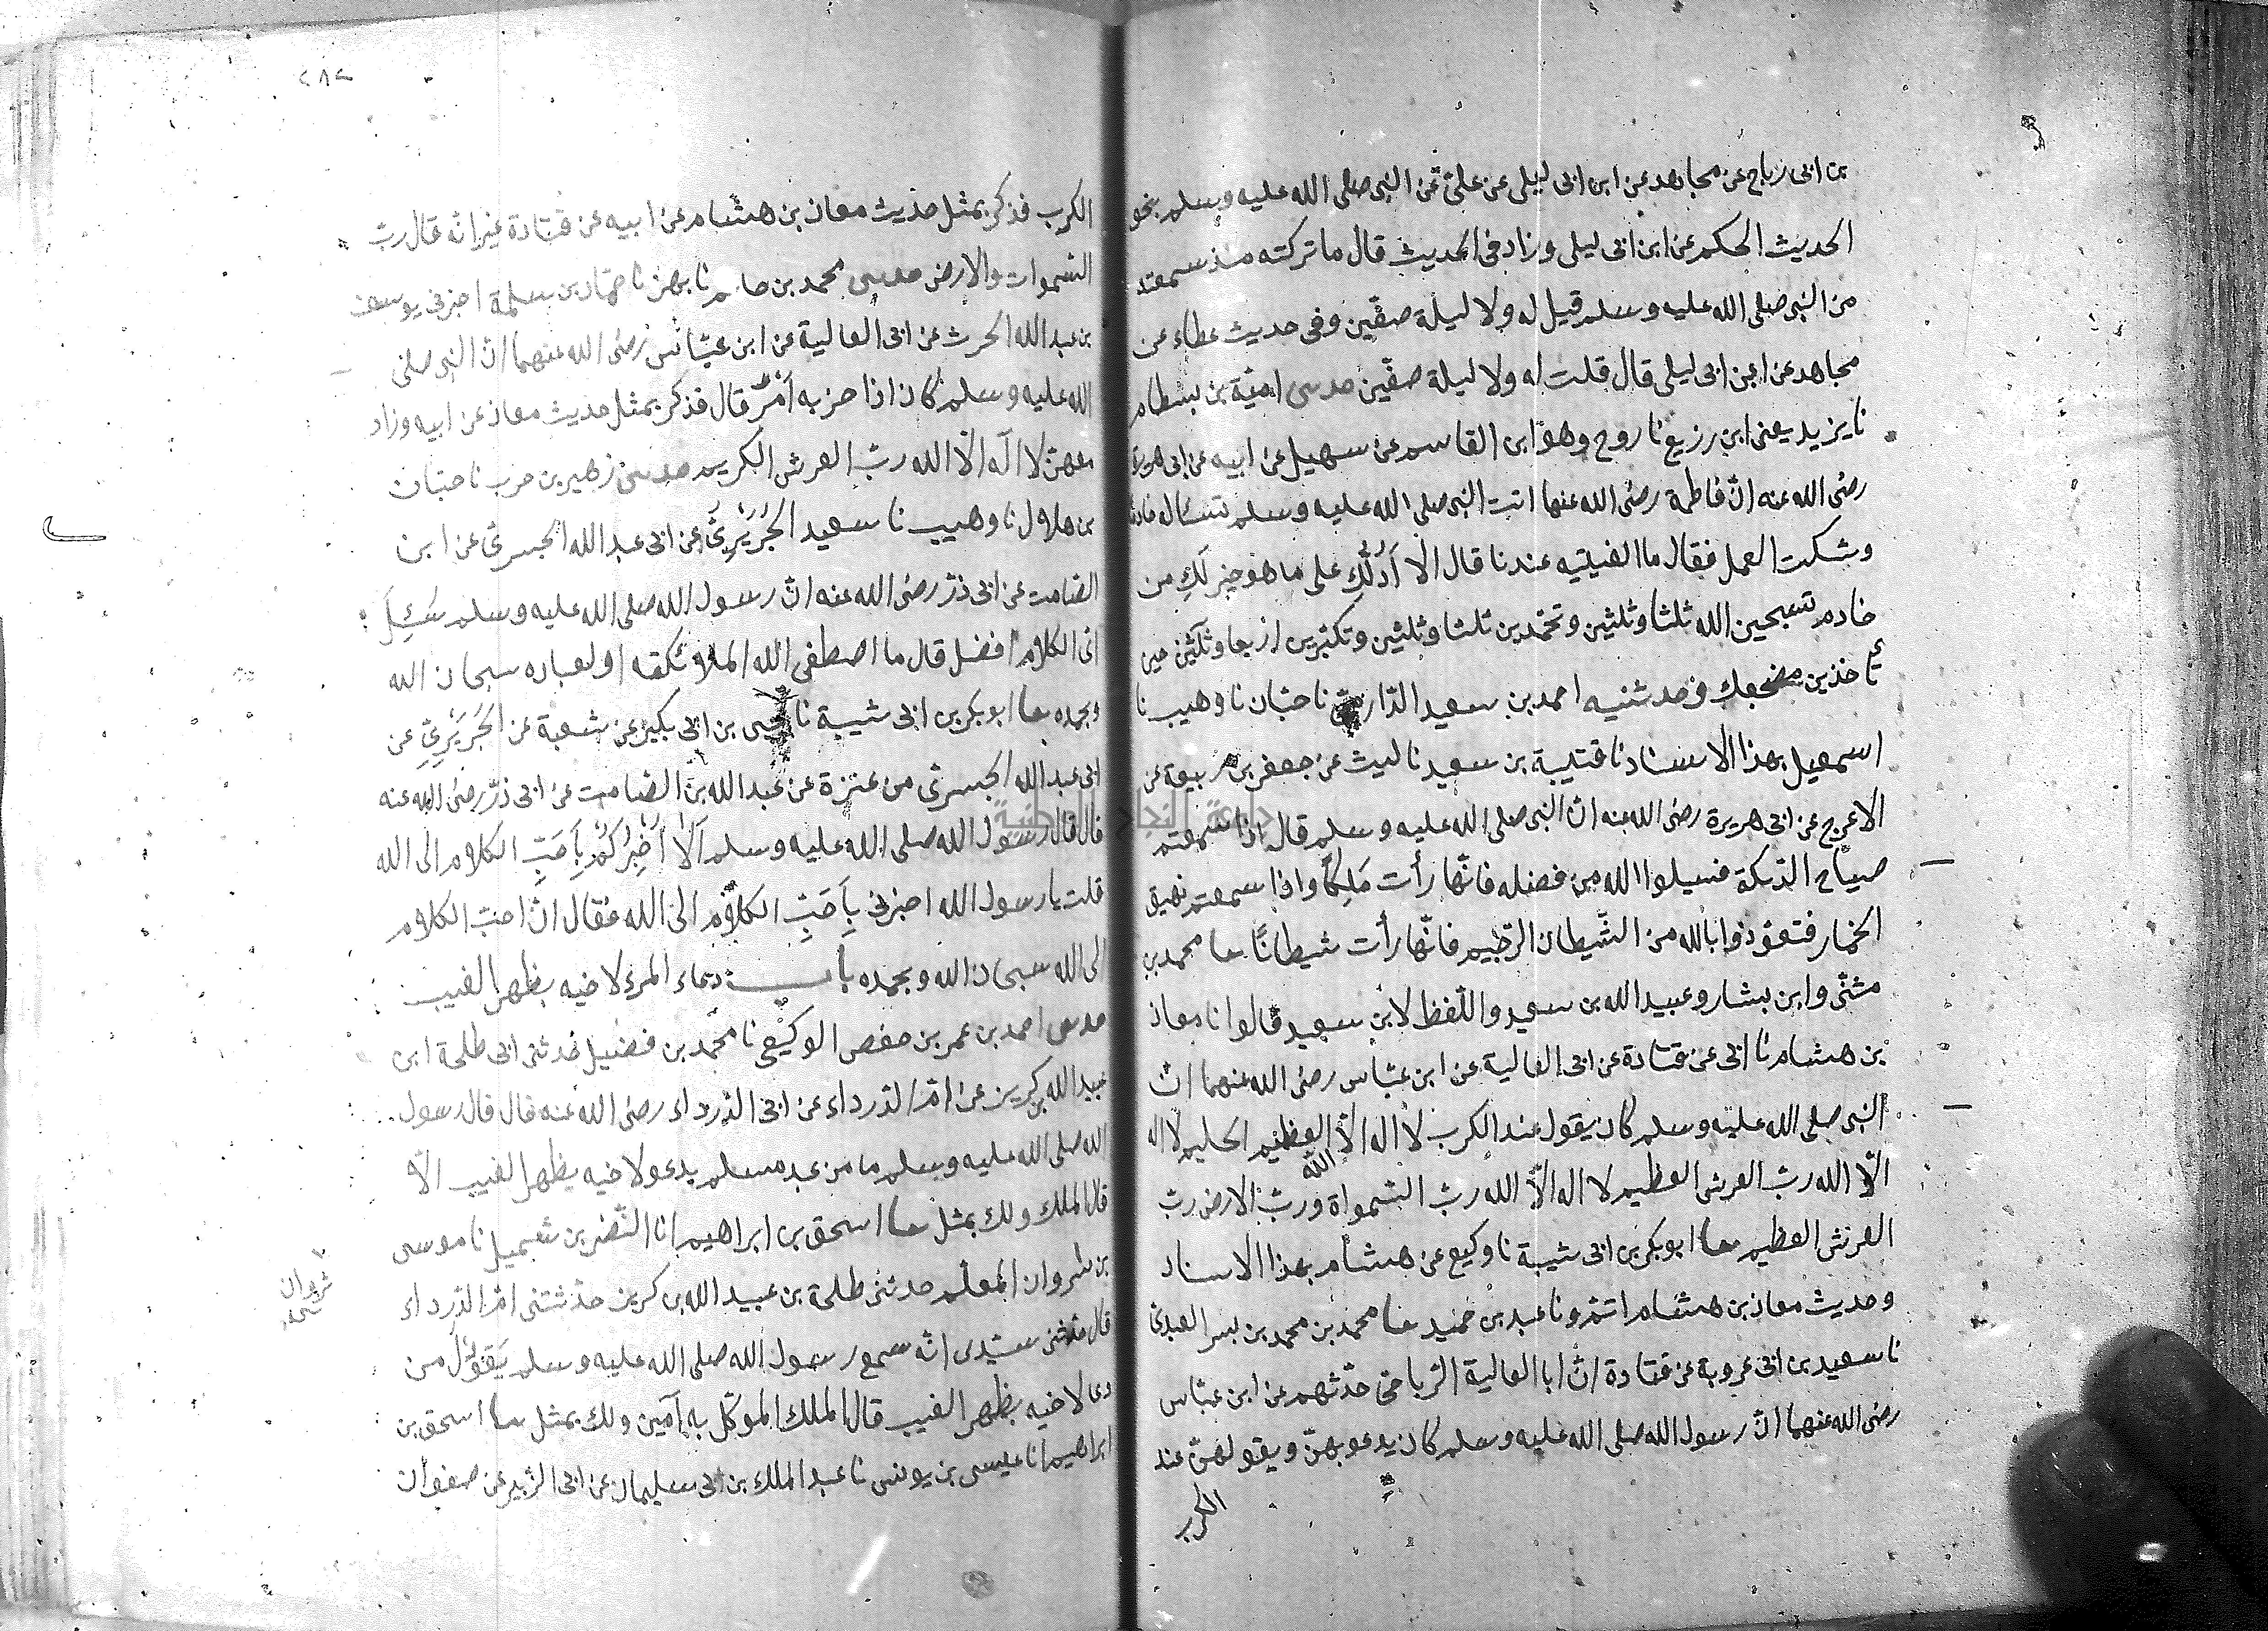 بن ابى رباح عن مجاهد عن ابن ابى ليلى عن علىّ عن النبى صلى الله عليه وسلم بنحو
الحديث الحكم عن ابن ابى ليلى وزاد فى الحديث قال ما تركته منذ سمعته
من النبى صلى الله عليه وسلم قيل له ولا ليلة صفّين وفى حديث عطاء عن
مجاهد عن ابن ابى ليلى قال قلت له ولا ليلة صفّين حدسى اميّة بن بسطام
نا يزيد يعنى ابن زريع نا روح وهو ابن القاسم عن سهيل عن ابيه عن ابى هريرة
رضى الله عنه انّ فاطمة رضى الله عنها اتت النبى صلى الله عليه وسلم تسئاله خادما
وشكت العمل فقال ما الفيتيه عندنا قال الا اَدُلُّكِ على ما هو خير لَكِ من
خادم تسبحين الله ثلثا وثلثين وتحمّدين ثلثا وثلثين وتكبّرين اربعا وثلثين حين
تأخذين مضجعك وحدثنيه احمد بن سعيد الدّارمىّ نا حبّان نا وهيب نا
اسمعيل بهذا الاسناد نا قتيبة بن سعيد نا ليث عن جعفر بن ربيعة عن
الاعرج عن ابى هريرة رضى الله عنه انّ النبى صلى الله عليه وسلم قال اذا سمعتم
صياح الديكة فسيلوا الله من فضله فانّها رأت مَلِكاً واذا سمعتم نهيق
الحمار فتعوّذوا بالله من الشّيطان الرّجيم فانّها رأت شيطانًا حا محمد بن
مثنّى وابن بشار وعبيد الله بن سعيد واللّفظ لابن سعيد قالوا نا معاذ
بن هشام نا ابى عن قتادة عن ابى العالية عن ابن عبّاس رضى الله عنهما انّ
النبى صلى الله عليه وسلم كان يقول عند الكرب لا اله الّا الله العظيم الحليم لا اله
الّا الله ربّ العرش العظيم لا اله الّا الله ربّ السّمواة وربّ الارض ربّ
العرش العظيم حا ابو بكر بن ابى شيبة نا وكيع عن هشام بهذا الاسناد
وحديث معاذ بن هشام اتمّ ونا عبد بن حميد حا محمد بن محمد بن بسر العبدىّ
نا سعيد بن ابى عروبة عن قتادة انّ ابا العالية الرّياحىّ حدّثهم عن ابن عبّاس
رضى الله عنهما انّ رسول الله صلى الله عليه وسلم كان يدعو بهنّ ويقولهنّ عند
الكرب
٢٨٢
الكرب فذكر بمثل حديث معاذ بن هشام عن ابيه عن قتادة غير انّه قال ربّ
السّموات والارض حدسى محمد بن حاتم نا بهز نا حمّاد بن سلمة اخبرنى يوسف
بن عبد الله الحرث عن ابى العالية عن ابن عبّاس رضى الله عنهما انّ النبى صلى
الله عليه وسلم كان اذا حزبه اَمْرٌ قال فذكر بمثل حديث معاذ عن ابيه وزاد
معهنّ لا اله الّا الله ربّ العرش الكريم حدسى زهير بن حرب نا حبّان
بن هلال نا وهيب نا سعيد الجُرَيْرِىُّ عن ابى عبد الله الجسرىّ عن ابن
الصّامت عن ابى ذرّ رضى الله عنه انّ رسول الله صلى الله عليه وسلم سُئِلَ
اىّ الكلام افضل قال ما اصطفى الله لملائكته او لعباده سبحان الله
وبحمده حا ابو بكر بن ابى شيبة نا يحيى بن ابى بكير عن شعبة عن الجُرَيْرِىِّ عن
ابى عبد الله الجسرىّ من عنزة عن عبد الله بن الصّامت عن ابى ذرّ رضى الله عنه
قال قال رسول الله صلى الله عليه وسلم اَلَا اُخْبِرُكُمْ بِاَحَبِّ الكلام الى الله
قلت يا رسول الله اخبرنى بِاَحَبِّ الكلام الى الله فقال انّ احبّ الكلام
الى الله سبحان الله وبحمده باب دعاء المرء لاخيه بظهر الغيب
حدسى احمد بن عمر بن حفص الوكيعى نا محمد بن فضيل حدثنى ابى طلحة ابن
عبيد الله بن كريز عن امّ الدّرداء عن ابى الدّرداء رضى الله عنه قال قال رسول
الله صلى الله عليه وسلم ما من عبد مسلم يدعو لاخيه بظهر الغيب الّا
قال الملك ولك بمثل حا اسحق بن ابراهيم انا النّضر بن شميل نا موسى
بن سروان المعلّم حدثنى طلحة بن عبيد الله بن كريز حدّثتنى امّ الدّرداء
ثروان
نسخه
قال حدثنى سيّدى انّه سمع رسول الله صلى الله عليه وسلم يَقُوْلُ من
دعا لاخيه بظهر الغيب قال الملك الموكّل به آمين ولك بمثل حا اسحق بن
ابراهيم انا عيسى بن يونس نا عبد الملك بن ابى سليمان عن ابى الزّبير عن صفوان
جامعة النجاح الوطنية